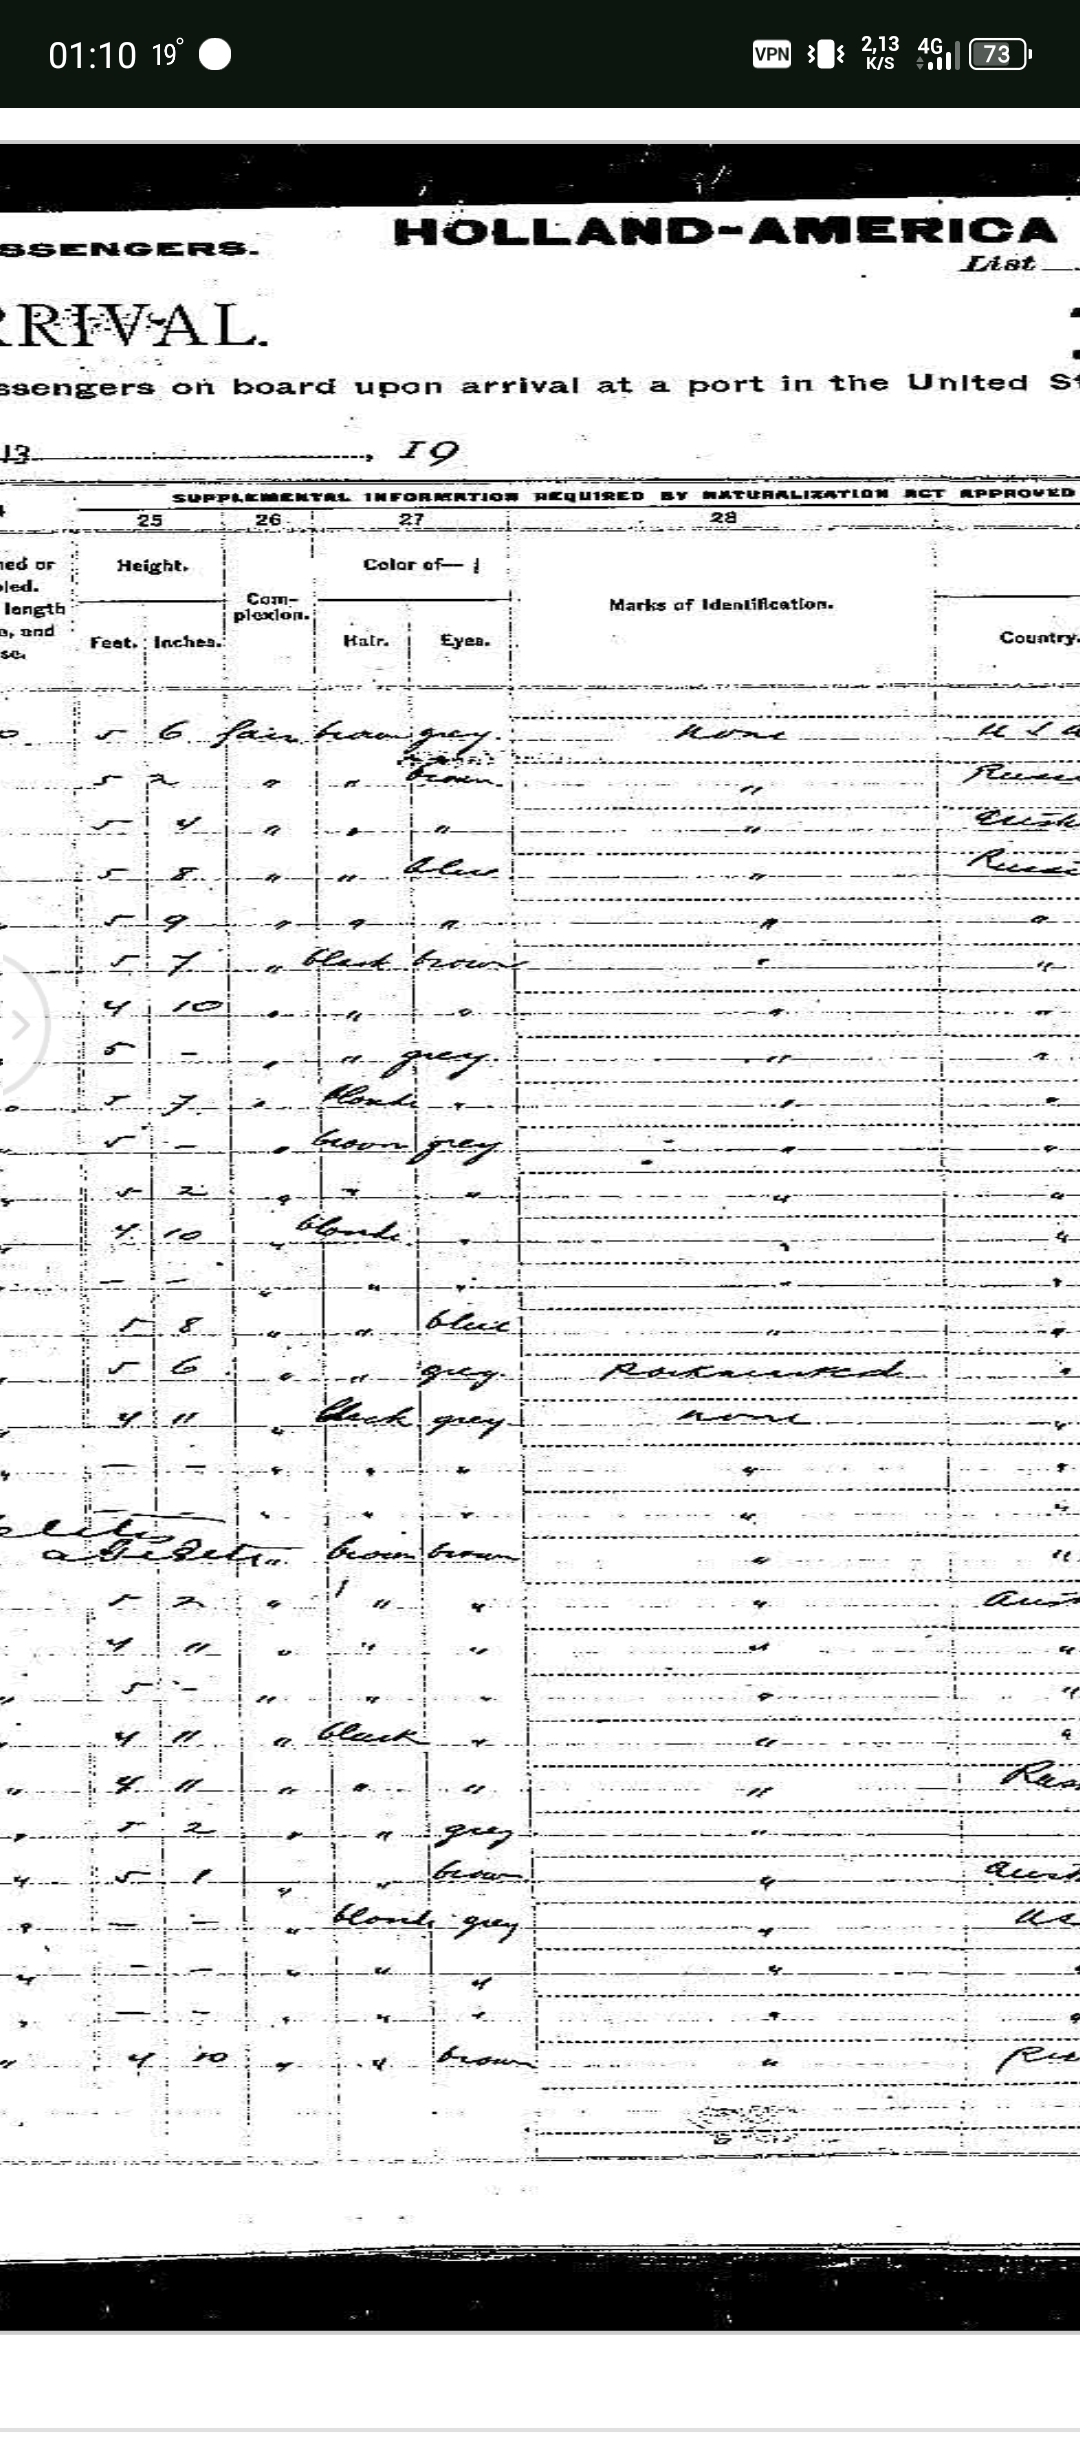 01:10 19° VPN 2,13 K/S 4G 73
SSENGERS. HOLLAND-AMERICA
List
RRIVAL.
ssengers on board upon arrival at a port in the United St
13 , 19
SUPPLEMENTAL INFORMATION REQUIRED BY NATURALIZATION ACT APPROVED
25 26 27 28
ed or Height. Color of—
led. Com-
length plexion. Marks of Identification.
, and Feet. Inches. Hair. Eyes. Country.
se.
5 6 fair brown grey none U S A
5 2 " " brown "
5 4 " " " "
5 8 " " blue "
5 9 " " " " "
5 7 " black brown " "
4 10 " " " " "
5 - " " grey " "
5 7 " blonde " " "
5 - " brown grey " "
5 2 " " " " "
4 10 " blonde " " "
- - " " " " "
5 8 " " blue " "
5 6 " " grey Pockmarked "
4 11 " black grey none "
- - " " " " "
" " " " "
" brown brown " "
5 2 " " " "
4 11 " " " " "
5 - " " " " "
4 11 " black " " "
" 4 11 " " " "
" 5 2 " " grey "
" 5 1 " " brown "
" - - " blonde grey " US
" - - " " " " "
" - - " " " " "
" 4 10 " " brown "